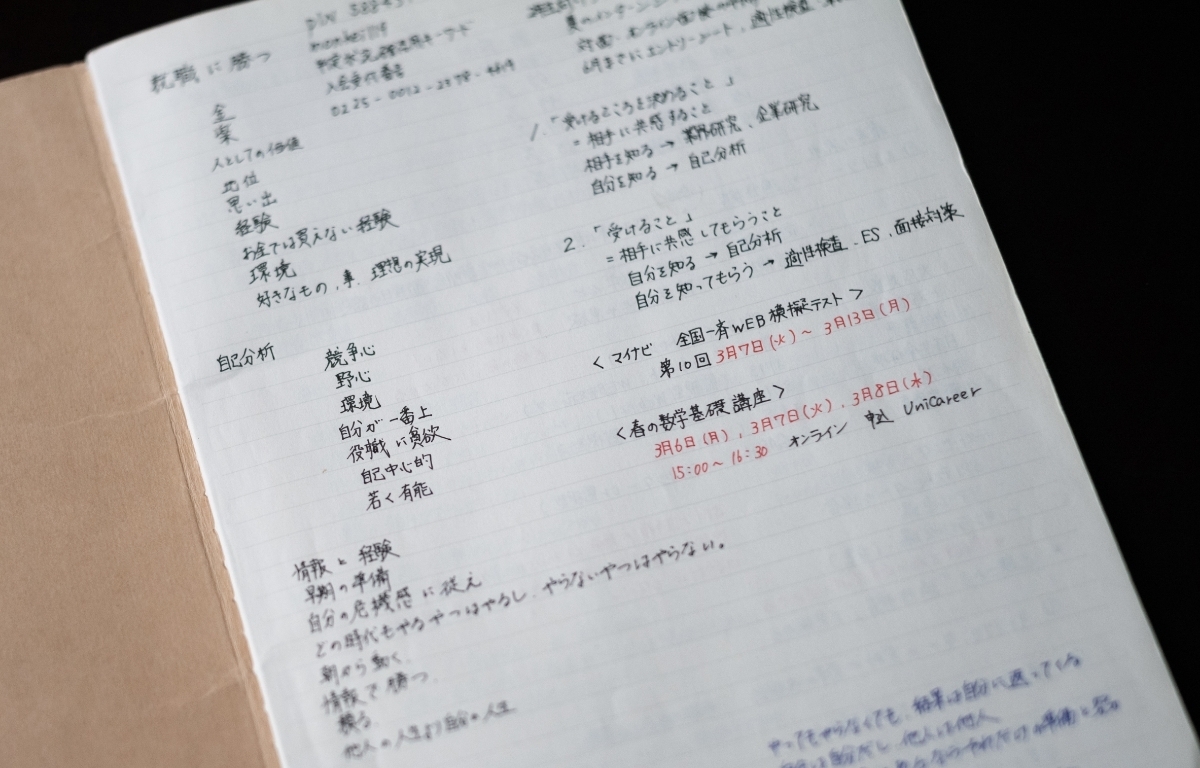 就職に勝つ
金
楽
人としての価値
地位
思い出
経験
お金では買えない経験
環境
好きなもの、事、理想の実現
自己分析
競争心
野心
環境
自分が一番上
役職に貪欲
自己中心的
若く有能
情報と経験
早期の準備
自分の危機感に従え
どの時代もやるやつはやるし、やらないやつはやらない。
朝から動く
情報で勝つ
他人の人生より自分の人生
pin
入会受付番号
夏のインターンシ
対面、オンライン面接
6月までにエントリーシート、適性検査、
1.「受けるところを決めること」
=相手に共感すること
相手を知る→業界研究、企業研究
自分を知る→自己分析
2.「受けること」
=相手に共感してもらうこと
自分を知る→自己分析
自分を知ってもらう→適性検査、ES、面接対策
<マイナビ 全国一斉WEB模擬テスト>
第10回 3月7日(火)~3月13日(月)
<春の数学基礎講座>
3月6日(月)、3月7日(火)、3月8日(水)
15:00~16:30 オンライン 申込 UniCareer
やってもやらなくても、結果は自分に返ってくる
自分だし、他人は他人